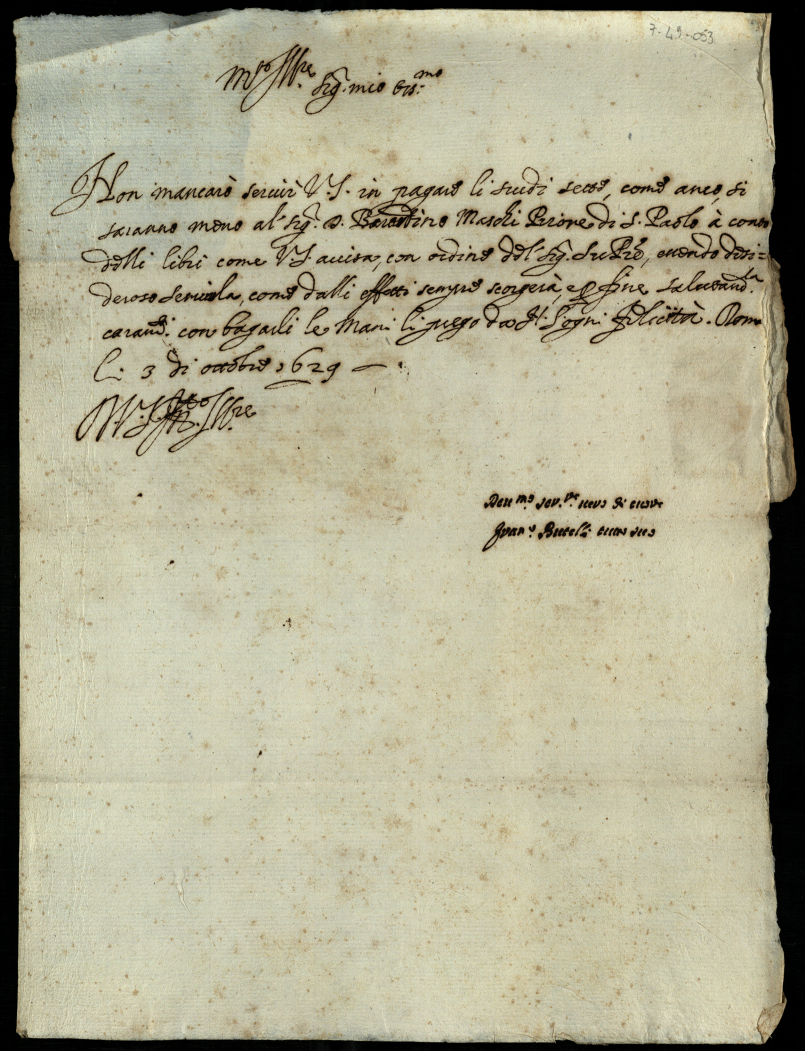 7-49-053
m.to Ill.re Sig.r mio oss.mo
Non mancarò servir V.S. in pagare li scudi sette, come anco, si
saranno meno al Sig.r D. Masoli Priore di S. Paolo à conto
delli libri come VS avvisa, con ordine del Sig.r Suo Pre, essendo desi=
deroso servirla, come dalli effetti sempre scorgerà, e per fine salutand.la
caram.te con bagarli le Mani li prego da N.S. ogni felicità. Roma
li 3 di ottobre 1629
D. V.S. m.to Ill.re
Aff.mo ser.re di cuore
Fran.o Bucelli